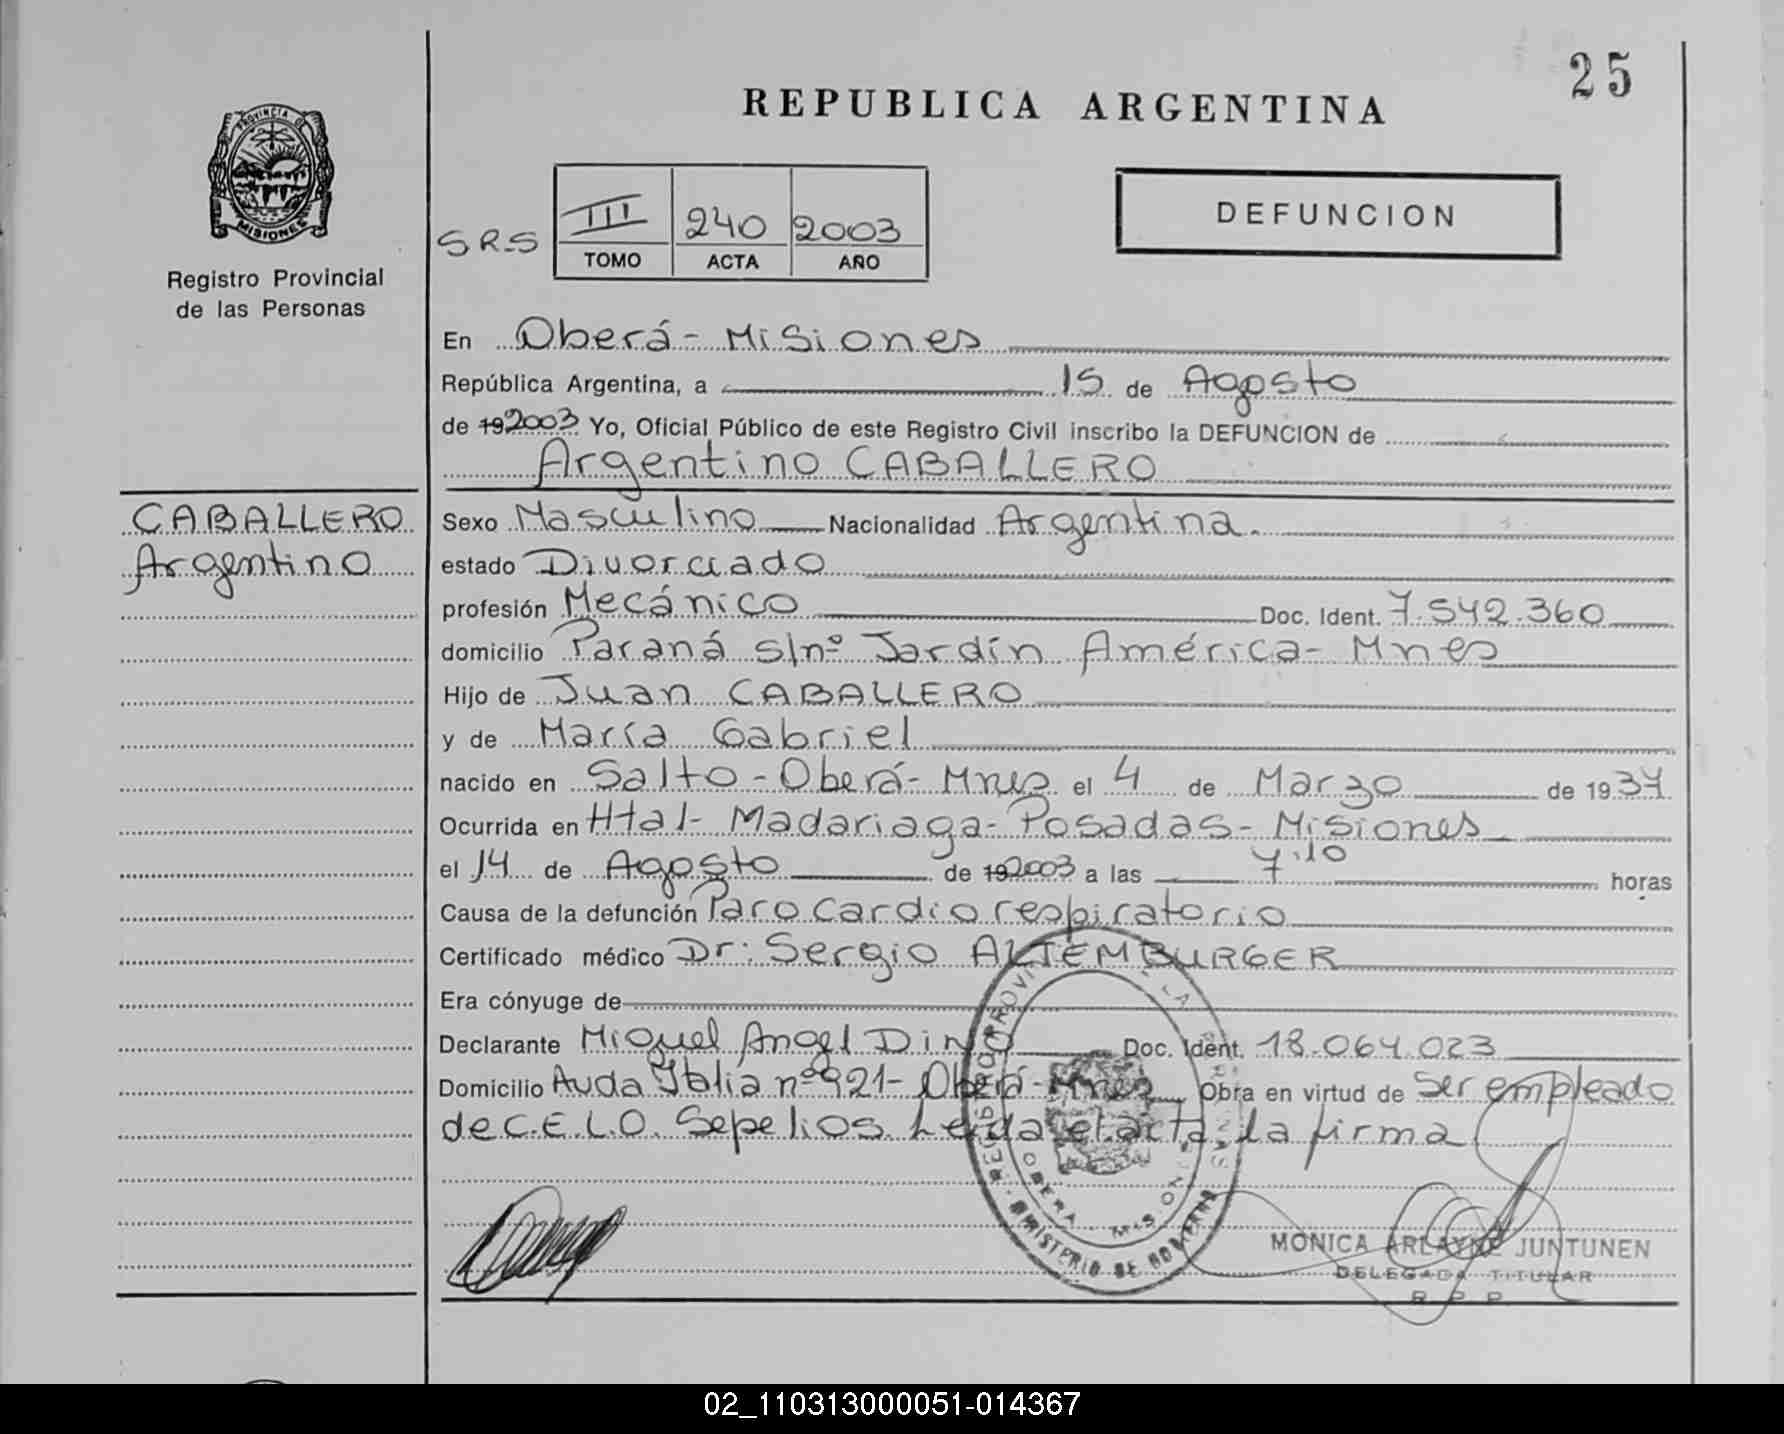 25
REPUBLICA ARGENTINA
PROVINCIA DE
MISIONES
Registro Provincial
de las Personas
SRS
III 240 2003
TOMO ACTA AÑO
DEFUNCION
En Oberá - Misiones
República Argentina, a 15 de Agosto
de 192003 Yo, Oficial Público de este Registro Civil inscribo la DEFUNCION de
Argentino CABALLERO
CABALLERO
Argentino
Sexo Masculino Nacionalidad Argentina.
estado Divorciado
profesión Mecánico Doc. Ident. 7.542.360
domicilio Paraná s/nº Jardín América - Mnes
Hijo de Juan CABALLERO
y de María Gabriel
nacido en Salto - Oberá - Mnes el 4 de Marzo de 1937
Ocurrida en Htal - Madariaga - Posadas - Misiones
el 14 de Agosto de 192003 a las 7.10 horas
Causa de la defunción Paro cardiorespiratorio
Certificado médico Dr: Sergio ALTEMBURGER
Era cónyuge de
Declarante Miguel Angel Doc. Ident. 18.064.023
Domicilio Avda Italia nº 921 - Oberá - Mnes Obra en virtud de Ser empleado
de C.E.L.O. Sepelios. Leida el acta, la firma
OBERA MISIONES
MINISTERIO DE GOBIERNO
MONICA ARLAYNE JUNTUNEN
DELEGADA TITULAR
R P P
02_110313000051-014367